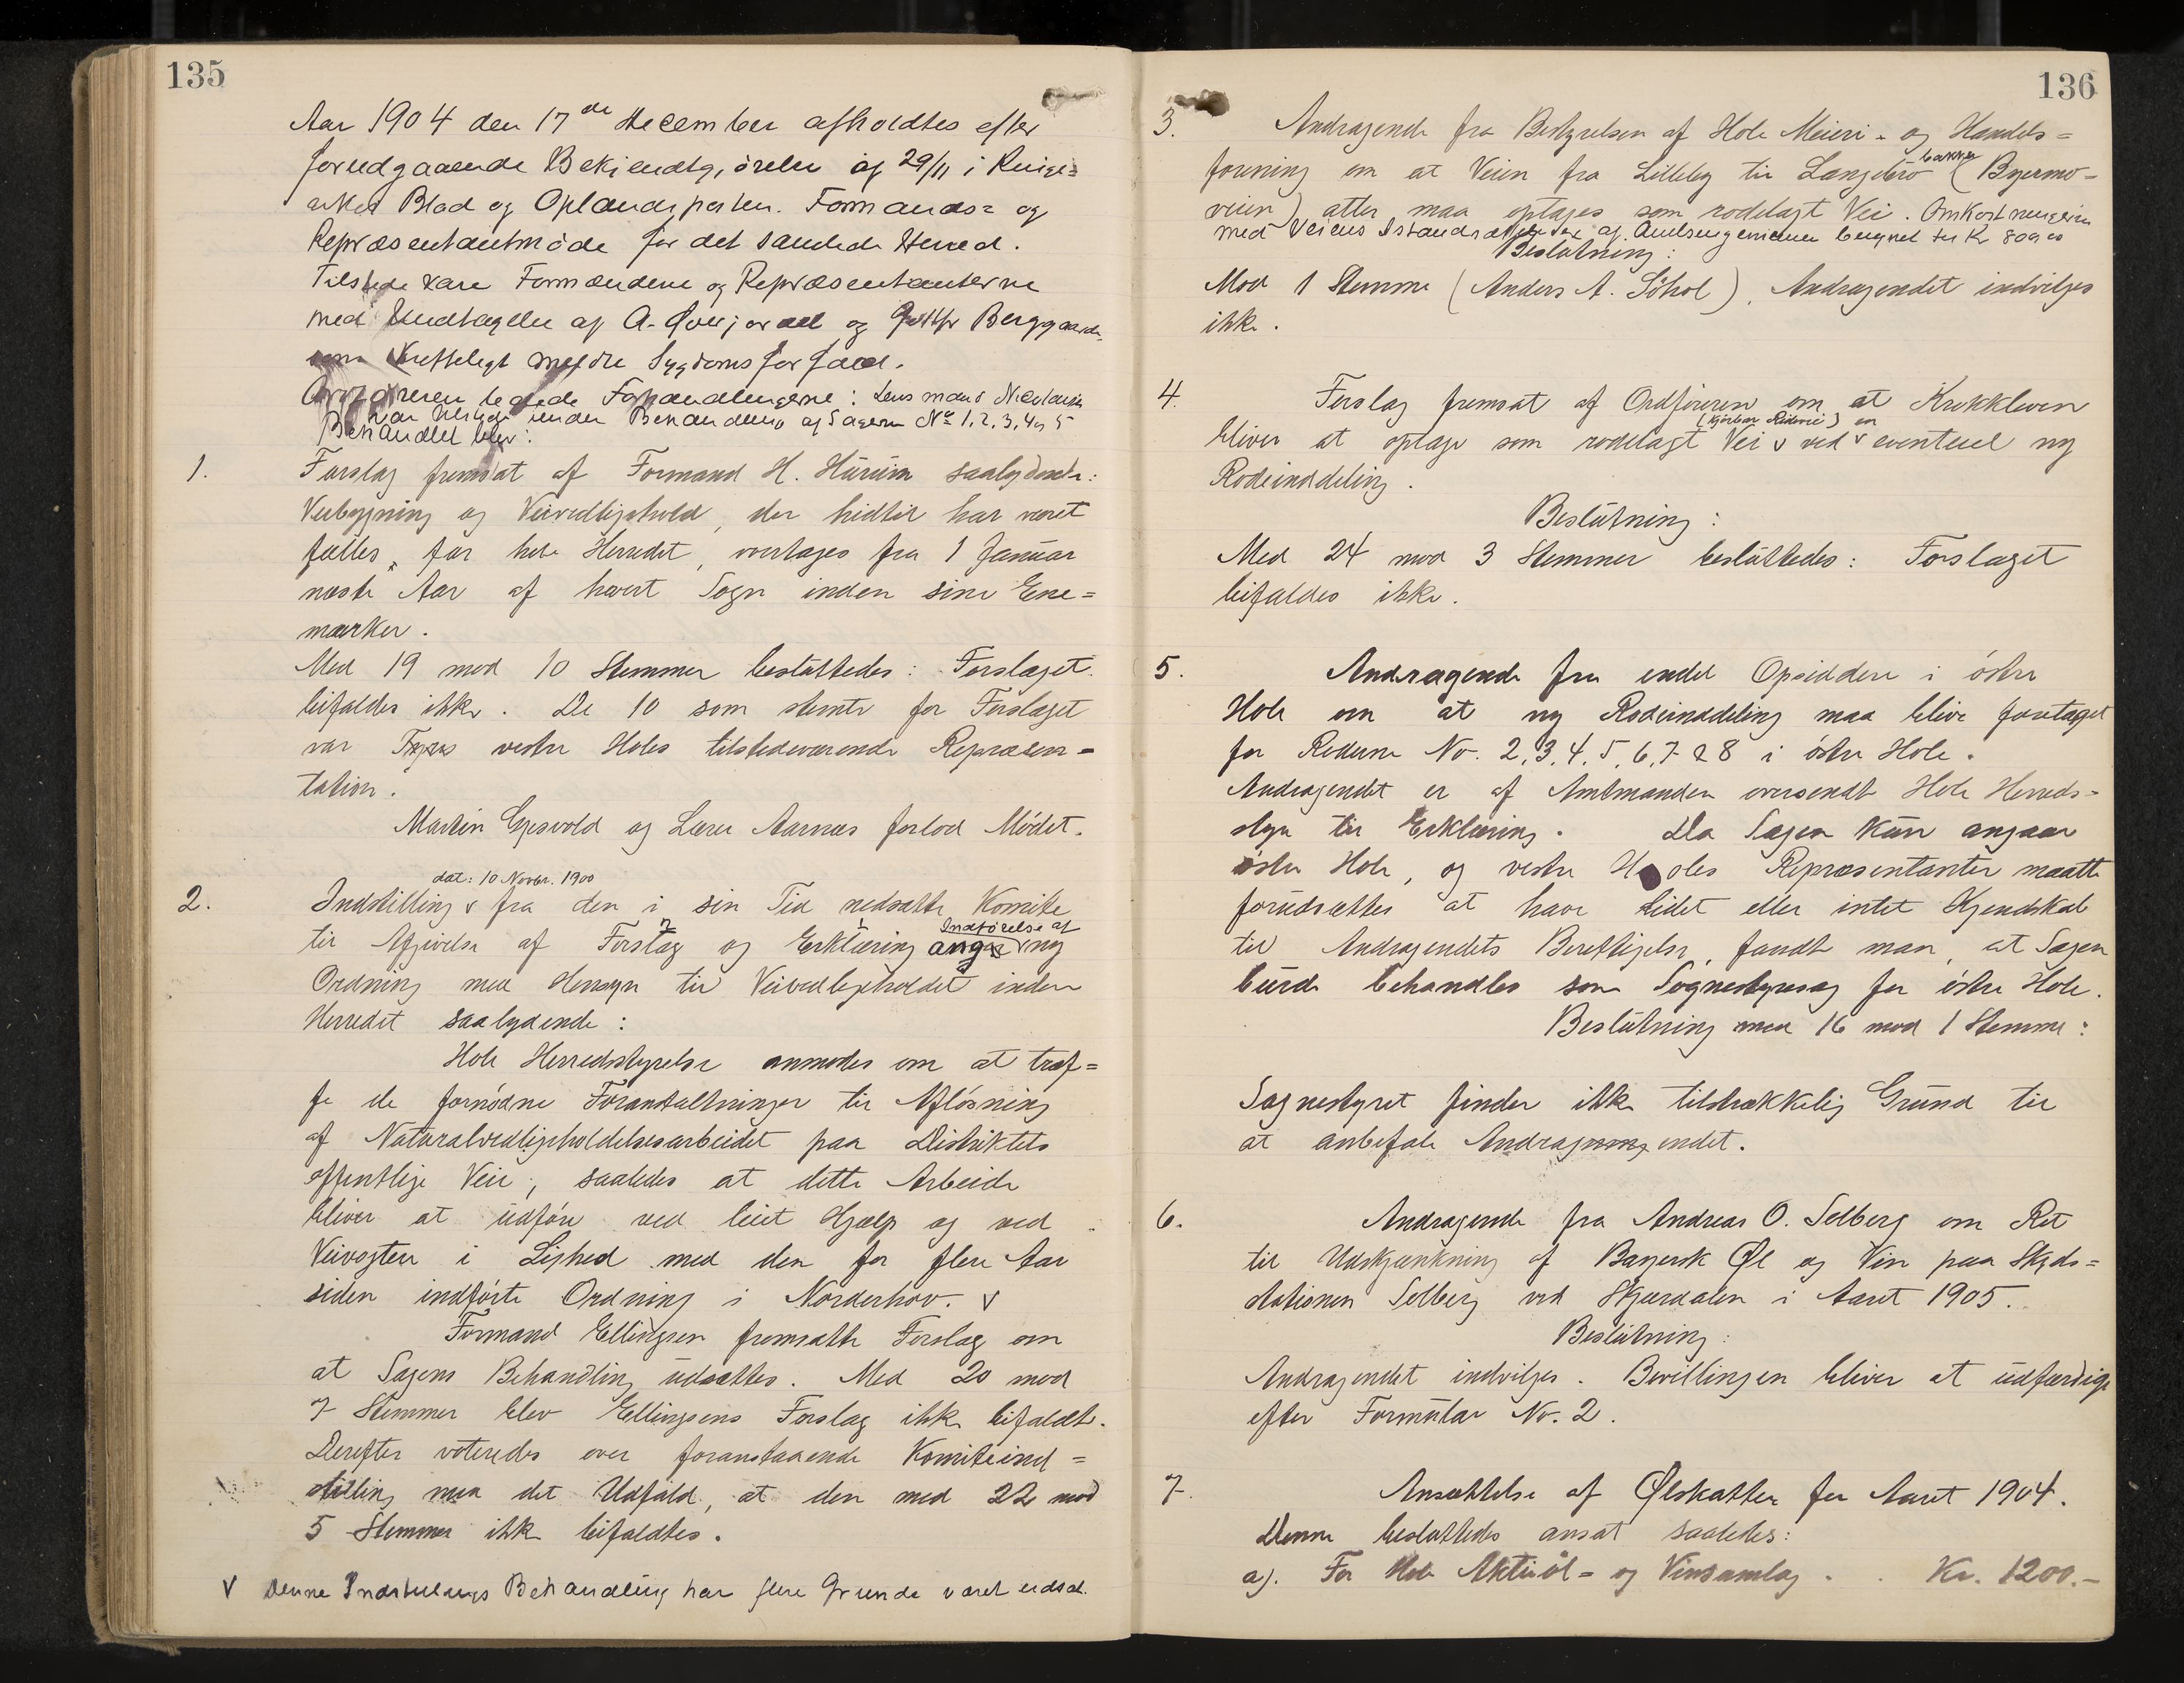 135
Aar 1904 den 17de December afholdtes efter
forudgaaende Bekjendtgjørelse af 29/11 i Ringe=
rikes Blad og Oplandsposten. Formands= og
Repræsentantmøde for det samlede Herred.
Tilstede vare Formændene og Repræsentanterne
med Undtagelse af A. og Berggaarden
som skriftligt meldte Sygdomsforfald.
Ordføreren ledede Forhandlingerne: Lensmand
var tilstede under Behandling af Sagerne No 1, 2, 3, 4 og 5
Behandlet blev:
1. Forslag fremsat af Formand H. Hurum saalydende:
Veibygning og Veivedligehold, der hidtil har været
fælles, for hele Herredet, overtages fra 1 Januar
næste Aar af hvert Sogn inden sine Ene=
mærker.
Med 19 mod 10 Stemmer besluttedes: Forslaget
bifaldes ikke. De 10 som stemte for Forslaget
var vestre Holes tilstedeværende Repræsen=
tation.
Martin Gjesvold og Lærer Aarnæs forlod Mødet.
dat: 10 Novbr. 1900
2. Indstilling v fra den i sin Tid nedsatte Komite
Indførelse af
til Afgivelse af Forslag og Erklæring ang. v ny
Ordning med Hensyn til Veivedligeholdet inden
Herredet saalydende:
Hole Herredsstyrelse anmodes om at træf=
fe de fornødne Foranstaltninger til Afløsning
af Naturalvedligeholdelsesarbeidet paa Distriktets
offentlige Veie, saaledes at dette Arbeide
bliver at udføre ved leiet Hjælp og ved
Veivogter i Lighed med den for flere Aar
siden indførte Ordning i Norderhov. v
Formand Ellingsen fremsatte Forslag om
at Sagens Behandling udsættes. Med 20 mod
7 Stemmer blev Ellingsens Forslag ikke bifaldt.
Derefter voteredes over foranstaaende Komiteind=
stilling med det Udfald, at den med 22 mod
5 Stemmer ikke bifaldtes.
v Denne Indstillings Behandling har flere Grunde været udsat.
136
3. Andragende fra Bestyrelsen af Hole Meieri- og Handels=
bakke
forening om at Veien fra Lilleby til Langebro (Byermo=
veien) atter maa optages som rodelagt Vei. Omkostningerne
med Veiens Istandsættelse er af Amtsingeniøren beregnet til Kr 800,00
Beslutning:
Mod 1 Stemme (Anders A. Søhol), Andragendet indvilges
ikke.
4. Forslag fremsat af Ordføreren om at Krokkleven
bliver at optage som rodelagt Vei v ved v eventuel ny
Rodeinddeling.
Beslutning:
Med 24 mod 3 Stemmer besluttedes: Forslaget
bifaldes ikke.
5. Andragende fra endel Opsiddere i østre
Hole om at ny Rodeinddeling maa blive foretaget
for Roderne No. 2, 3, 4, 5, 6, 7 & 8 i østre Hole.
Andragendet er af Amtmanden oversendt Hole Herreds=
styre til Erklæring. Da Sagen kun angaar
østre Hole, og vestre Holes Repræsentanter maatte
forudsættes at have lidet eller intet Kjendskab
til Andragendets Berettigelse, fandt man, at Sagen
burde behandles som Sognestyresag for østre Hole.
Beslutning med 16 mod 1 Stemme:
Sognestyret finder ikke tilstrækkelig Grund til
at anbefale Andragendet.
6. Andragende fra Andreas O. Selberg om Ret
til Udskjænkning af Bayersk Øl og Vin paa Skyds=
stationen Selberg ved Skjærdalen i Aaret 1905.
Beslutning:
Andragendet indvilges. Bevillingen bliver at udfærdige
efter Formular No. 2.
7. Ansættelse af Ølskatten for Aaret 1904.
Denne besluttedes ansat saaledes:
a). For Hole Aktieøl- og Vinsamlag . . Kr. 1200.-